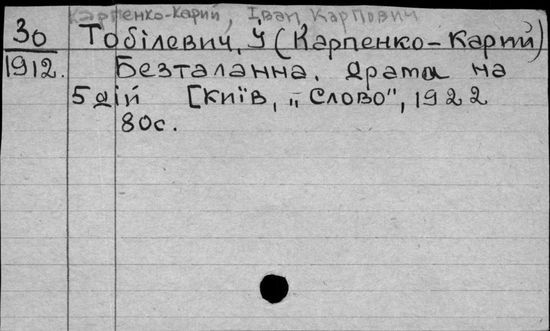 Карпенко-Карий, Іван Карпович
30 Тобілевич, У (Карпенко-Карий)
1912. Безталанна. Драма на
5 дій [Київ, „Слово", 1922
80с.